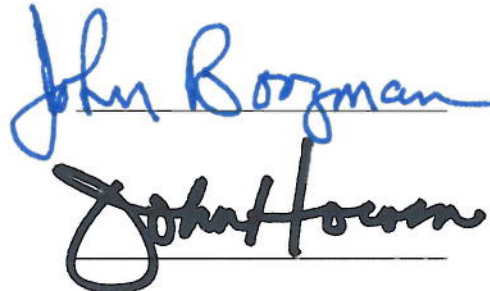 John Boozman
John Hoeven